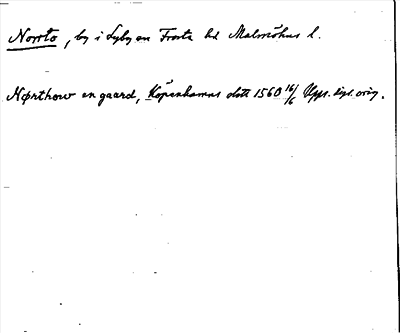 Norrto, by i Lyby sn Frosta hd Malmöhus l.
Nørthow en gaard, Köpenhamns slott 1560 16/6 Upps. dipl. orig.